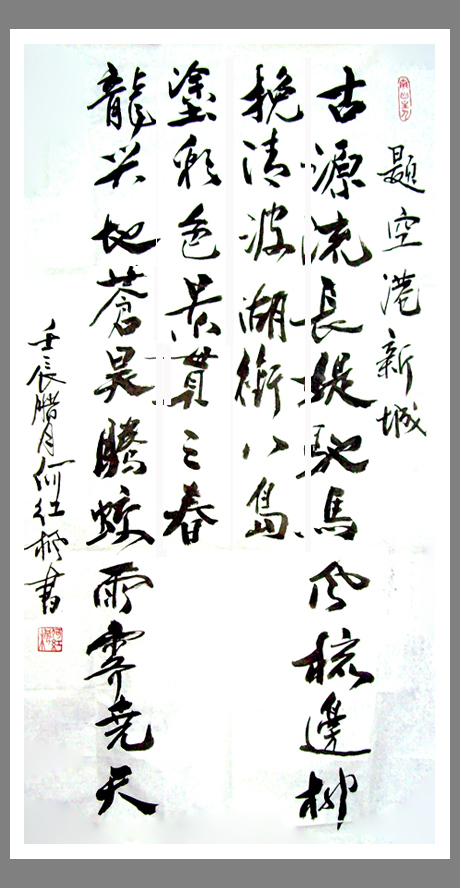 題空港新城
古源流長緹馳馬風梳邊柳
挽清波湖銜八島
塗彩色景貫三春
龍興地蒼昊騰蛟雨霽堯天
壬辰腊月何红書